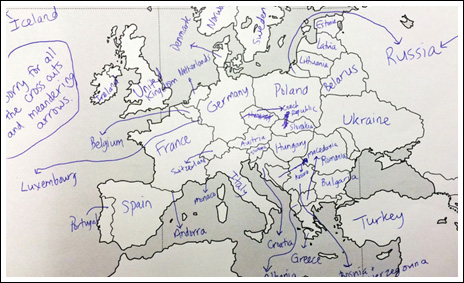 Iceland
Sorry for all
the cross outs
and meandering
arrows.
Denmark
Norway
Sweden
Estonia
Latvia
Lithuania
Russia
Belarus
Ireland
United
Kingdom
Netherlands
Germany
Poland
Czech
Republic
Slovakia
Ukraine
Belgium
France
Luxembourg
Switzerland
Austria
Hungary
Macedonia
Romania
Bulgaria
Italy
Monaco
Portugal
Spain
Andorra
Croatia
Greece
Turkey
Albania
Bosnia
Herzegovina